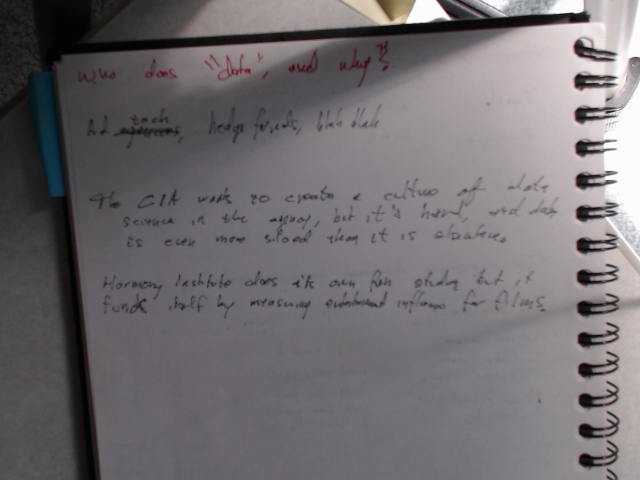 Who does "data", and why?
Ad tech agencies, hedge funds, blah blah
The CIA wants to create a culture of data
science in the agency, but it's hard, and data
is even more siloed than it is elsewhere.
Harmony Institute does its own fun studies but it
funds itself by measuring entertainment influence for films.